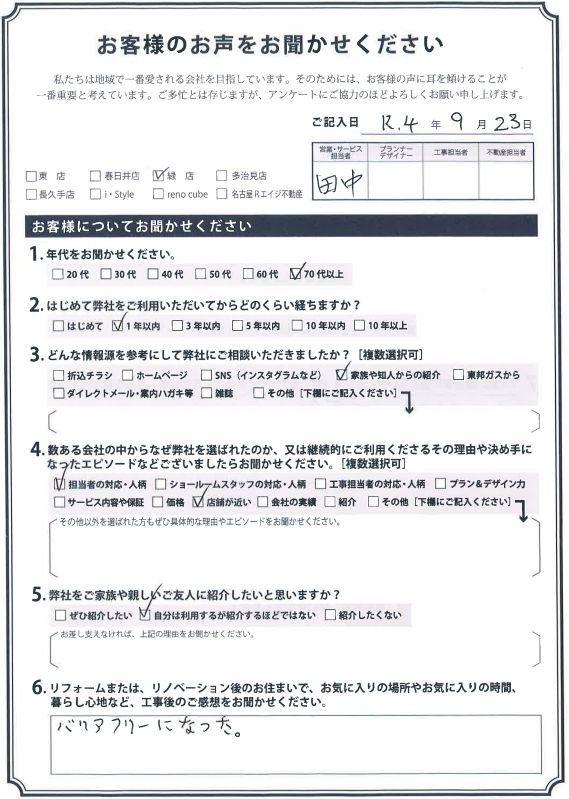 お客様のお声をお聞かせください
私たちは地域で一番愛される会社を目指しています。そのためには、お客様の声に耳を傾けることが
一番重要と考えています。ご多忙とは存じますが、アンケートにご協力のほどよろしくお願い申し上げます。
ご記入日 R.4 年 9 月 23 日
営業・サービス担当者 プランナーデザイナー 工事担当者 不動産担当者
田中
□東 店 □春日井店 ☑緑 店 □多治見店
□長久手店 □i・Style □reno cube □名古屋Rエイジ不動産
お客様についてお聞かせください
1. 年代をお聞かせください。
□20代 □30代 □40代 □50代 □60代 ☑70代以上
2. はじめて弊社をご利用いただいてからどのくらい経ちますか？
□はじめて ☑1年以内 □3年以内 □5年以内 □10年以内 □10年以上
3. どんな情報源を参考にして弊社にご相談いただきましたか？［複数選択可］
□折込チラシ □ホームページ □SNS（インスタグラムなど） ☑家族や知人からの紹介 □東邦ガスから
□ダイレクトメール・案内ハガキ等 □雑誌 □その他［下欄にご記入ください］
4. 数ある会社の中からなぜ弊社を選ばれたのか、又は継続的にご利用くださるその理由や決め手に
なったエピソードなどございましたらお聞かせください。［複数選択可］
☑担当者の対応・人柄 □ショールームスタッフの対応・人柄 □工事担当者の対応・人柄 □プラン＆デザイン力
□サービス内容や保証 □価格 ☑店舗が近い □会社の実績 □紹介 □その他［下欄にご記入ください］
その他以外を選ばれた方もぜひ具体的な理由やエピソードをお聞かせください。
5. 弊社をご家族や親しいご友人に紹介したいと思いますか？
□ぜひ紹介したい ☑自分は利用するが紹介するほどではない □紹介したくない
お差し支えなければ、上記の理由をお聞かせください。
6. リフォームまたは、リノベーション後のお住まいで、お気に入りの場所やお気に入りの時間、
暮らし心地など、工事後のご感想をお聞かせください。
バリアフリーになった。